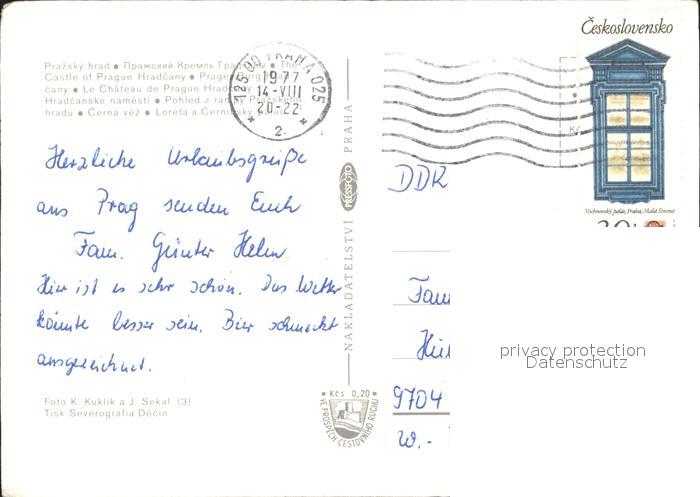 Československo
Pražský hrad ● Пражский Кремль ● The
Castle of Prague Hradčany ●
čany ● Le Château de Prague
Hradčanské náměstí ● Pohled z
hradu ● Černá věž ● Loreta a
125 00 PRAHA 025
1977
14-VIII
20-22
2
Michnovský palác, Praha, Malá Strana
Herzliche Urlaubsgrüße
aus Prag senden Euch
Fam. Günter Helm
Hier ist es sehr schön. Das Wetter
könnte besser sein. Bier schmeckt
ausgezeichnet.
NAKLADATELSTVÍ PRESSFOTO PRAHA
DDR
Fam
9704
W.-
privacy protection
Datenschutz
Foto K. Kuklík a J. Sekal (3)
Tisk Severografia Děčín
Kčs 0,20
VE PROSPĚCH CESTOVNÍHO RUCHU